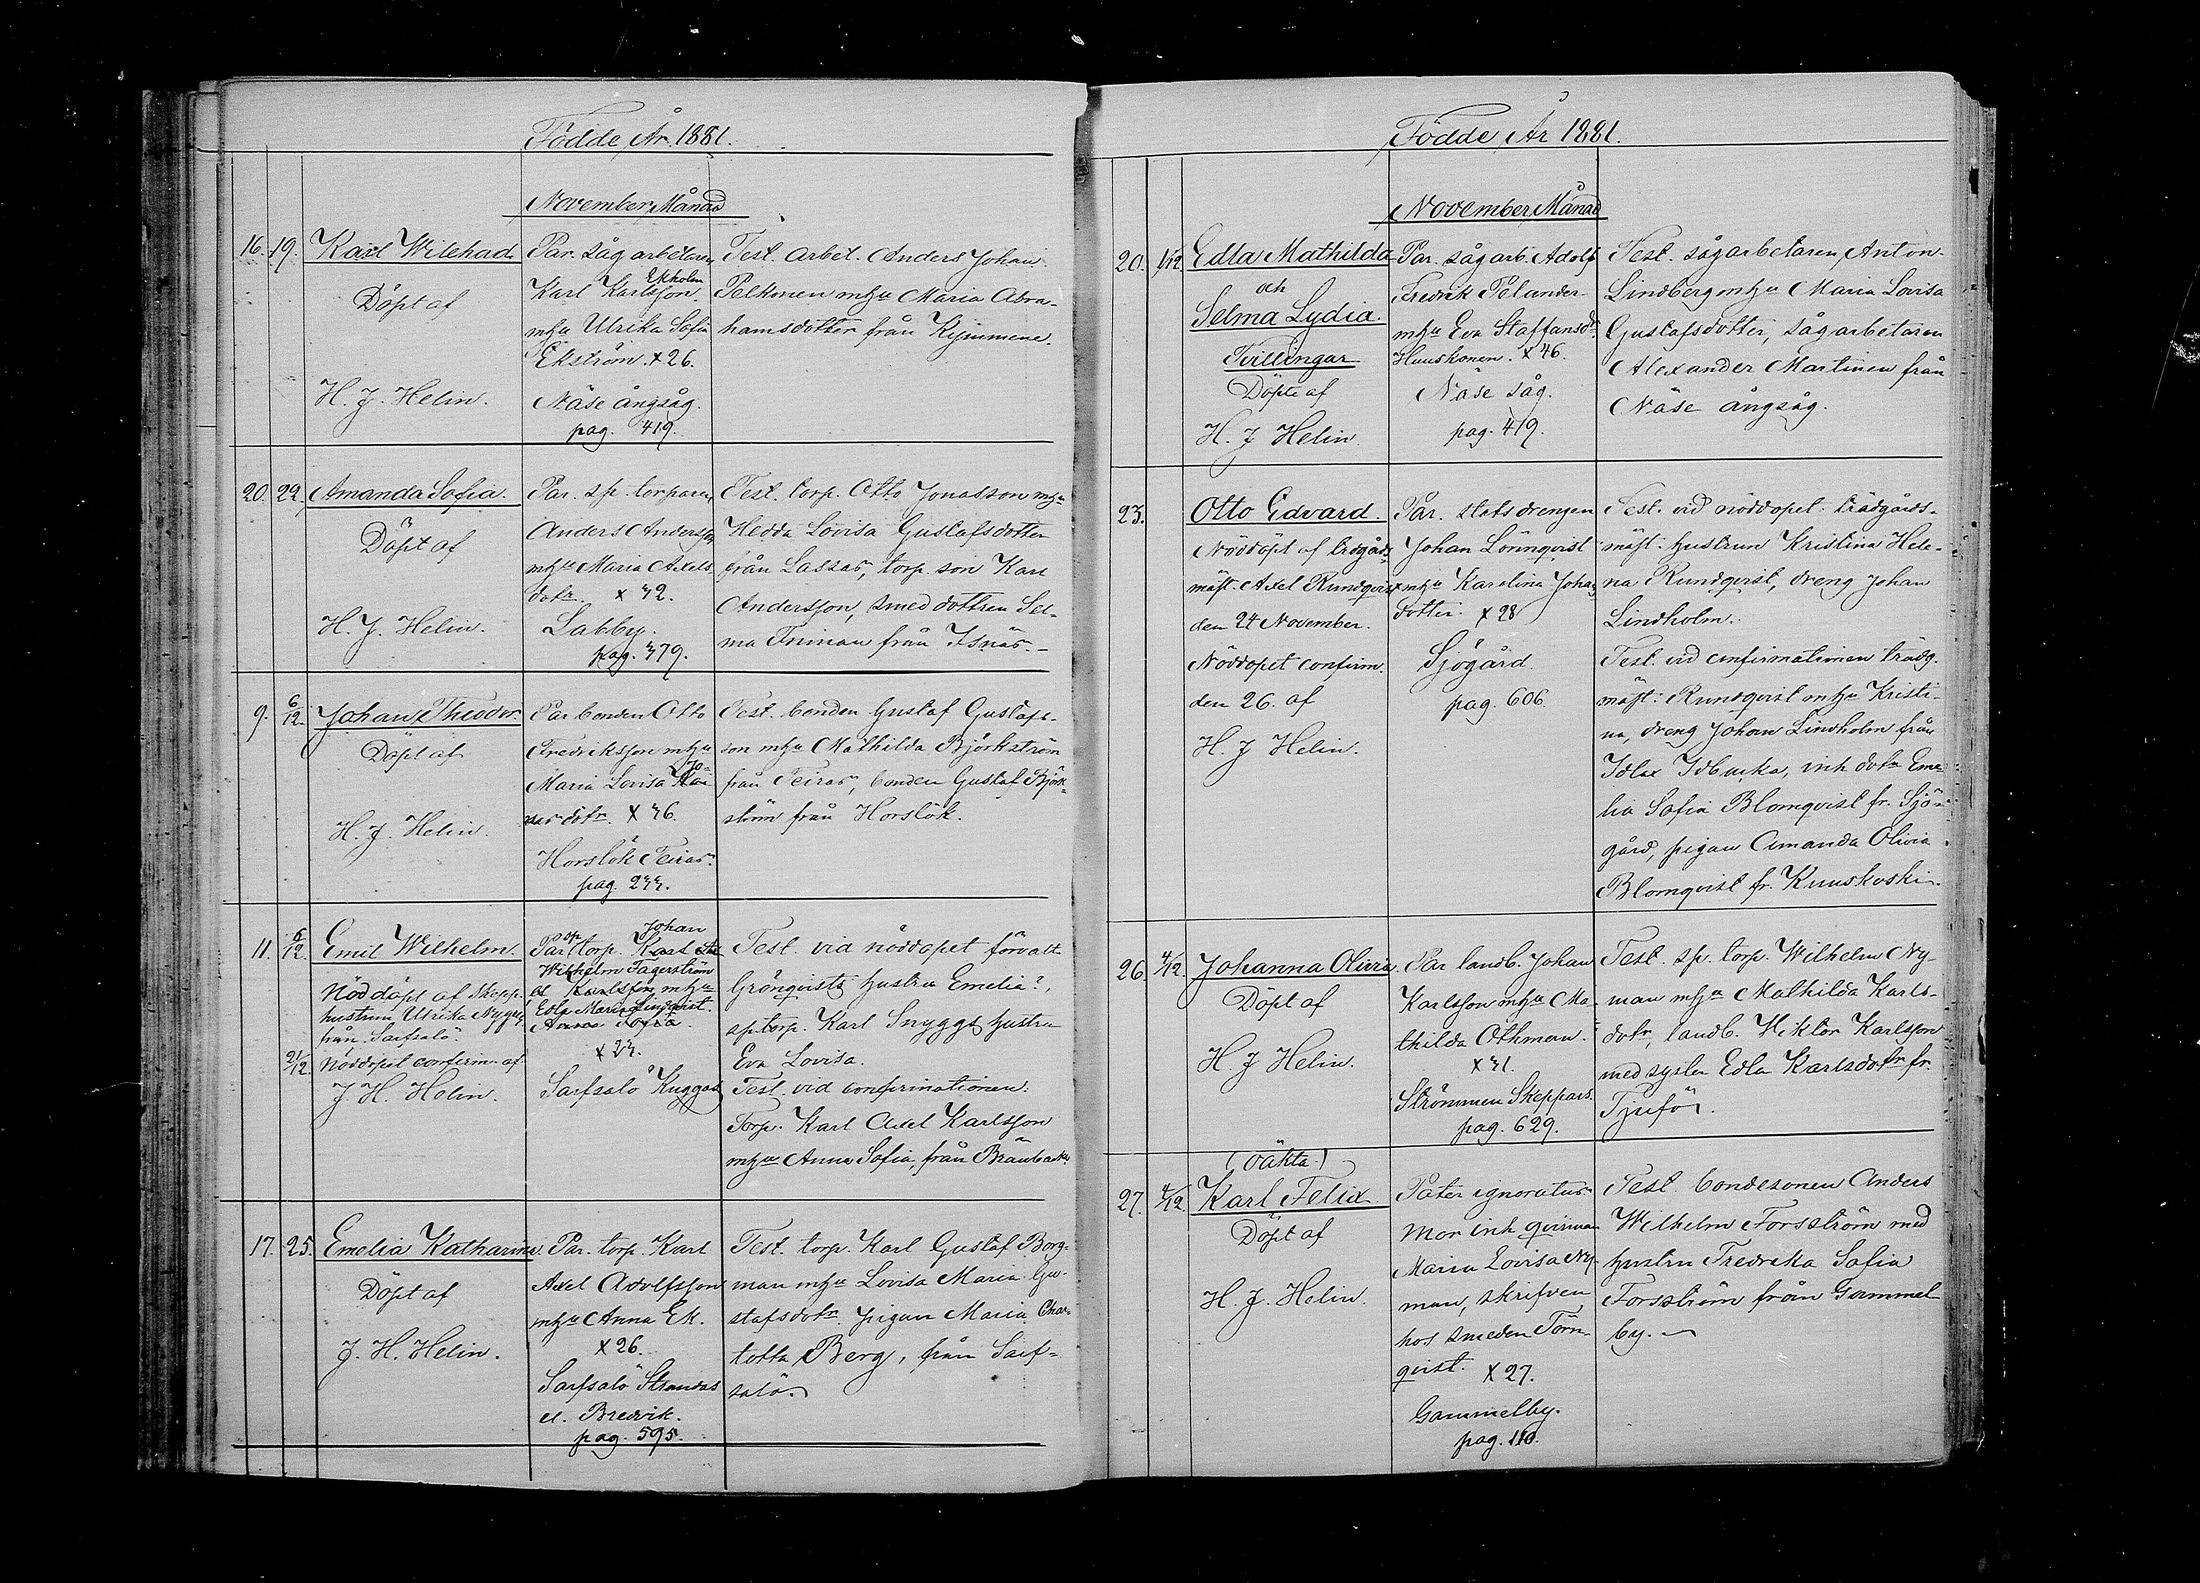 Födde År 1881.
November Månad
16. 19. Karl Wilehad
Döpt af
H. J. Helin.
Par. sågarbetaren
Ekholm
Karl Karlsson
mhu Ulrika Sofia
Ekström. x 26.
Näse ångsåg.
pag. 419.
Test. arbet. Anders Johan
Pelkonen mhu Maria Abra-
hamsdotter från Kymmene.
20. 22. Amanda Sofia.
Döpt af
H. J. Helin.
Par. sp. torparen
Anders Andersson
mhu Maria Axels-
dotr. x 42.
Labby.
pag. 379.
Test. torp. Otto Jonasson mhu
Hedda Lovisa Gustafsdotter
från Lassas, torp. son Karl
Andersson, smed dottren Sel-
ma Friman från Isnäs.
9. 6/12. Johan Theodor.
Döpt af
H. J. Helin.
Par bonden Otto
Fredriksson mhu
Maria Lovisa Jo-
nasdotr. x 36.
Horslök Teiras.
pag. 233.
Test. bonden Gustaf Gustafs-
son mhu Mathilda Björkström
från Teiras, bonden Gustaf Björk-
ström från Horslök.
11. 6/12. Emil Wilhelm.
Nöddöpt af skepp.
hustrun Ulrika Nygg
från Sarfsalö.
21/12. Nöddopet confirm. af
J. H. Helin.
Par sp. torp. Karl Johan
Wilhelm Fagerström
el Karlsson mhu
Edla Maria Lindqvist.
Anna Sofia.
x 23.
Sarfsalö Kuggas
Test. vid nöddopet förvalt.
Grönqvists hustru Emelia?,
sp. torp. Karl Snyggs hustru
Eva Lovisa.
Test. vid confirmationen:
Torp. Karl Axel Karlsson
mhu Anna Sofia, från Bränbacka.
17. 25. Emelia Katharina
Döpt af
J. H. Helin.
Par. torp. Karl
Axel Adolfsson
mhu Anna Ek.
x 26.
Sarfsalö Strandas
el. Bredvik.
pag. 595.
Test. torp. Karl Gustaf Borg-
man mhu Lovisa Maria Gu-
stafsdotr. pigan Maria Char-
lotta Berg, från Sarf-
salö.
Födde År 1881.
November Månad
20. 1/12. Edla Mathilda
och
Selma Lydia.
Tvillingar
Döpte af
H. J Helin
Par. sågarb. Adolf
Fredrik Pelander
mhu Eva Staffansdr
Huuskonen. x 46.
Näse såg.
pag. 419.
Test. sågarbetaren Anton
Lindberg mhu Maria Lovisa
Gustafsdotter, sågarbetaren
Alexander Martinen från
Näse ångsåg.
23. Otto Edvard.
Nöddöpt af trdgårds
mäst. Axel Rundqvist
den 24 November.
Nöddopet confirm.
den 26. af
H. J Helin.
Par. statsdrengen
Johan Lönnqvist
mhu Karolina Johans
dotter. x 28
Sjögård.
pag. 606.
Test. vid nöddopet: trädgårds-
mäst. hustrun Kristina Hele-
na Rundqvist, dreng Johan
Lindholm.
Test. vid confirmationen trädg.
mäst: Rundqvist mhu Kristi-
na, dreng Johan Lindholm från
Idlax Idbacka, inh. dotr. Eme-
lia Sofia Blomqvist fr. Sjö-
gård, pigan Amanda Olivia
Blomqvist fr. Kuuskoski.
26. 4/12. Johanna Olivia.
Döpt af
H. J Helin.
Par landb. Johan
Karlsson mhu Ma-
thilda Othman.
x 31.
Strömmen Skeppars.
pag. 629.
Test. sp. torp. Wilhelm Ny-
man mhu Mathilda Karls-
dotr, landb. Wiktor Karlsson
med syster Edla Karlsdotr fr.
Tjufö.
(oäkta.)
27. 4/12. Karl Felix.
Döpt af
H. J. Helin.
Pater ignoratus
Mor inh qvinnan
Maria Lovisa Ny-
man, skrifven
hos smeden Törn-
qvist. x 27.
Gammelby.
pag. 110.
Test. bondesonen Anders
Wilhelm Forsström med
hustru Fredrika Sofia
Forsström från Gammel
by.